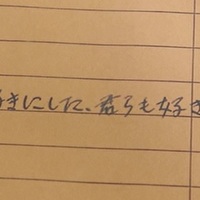 好きにした、君らも好き